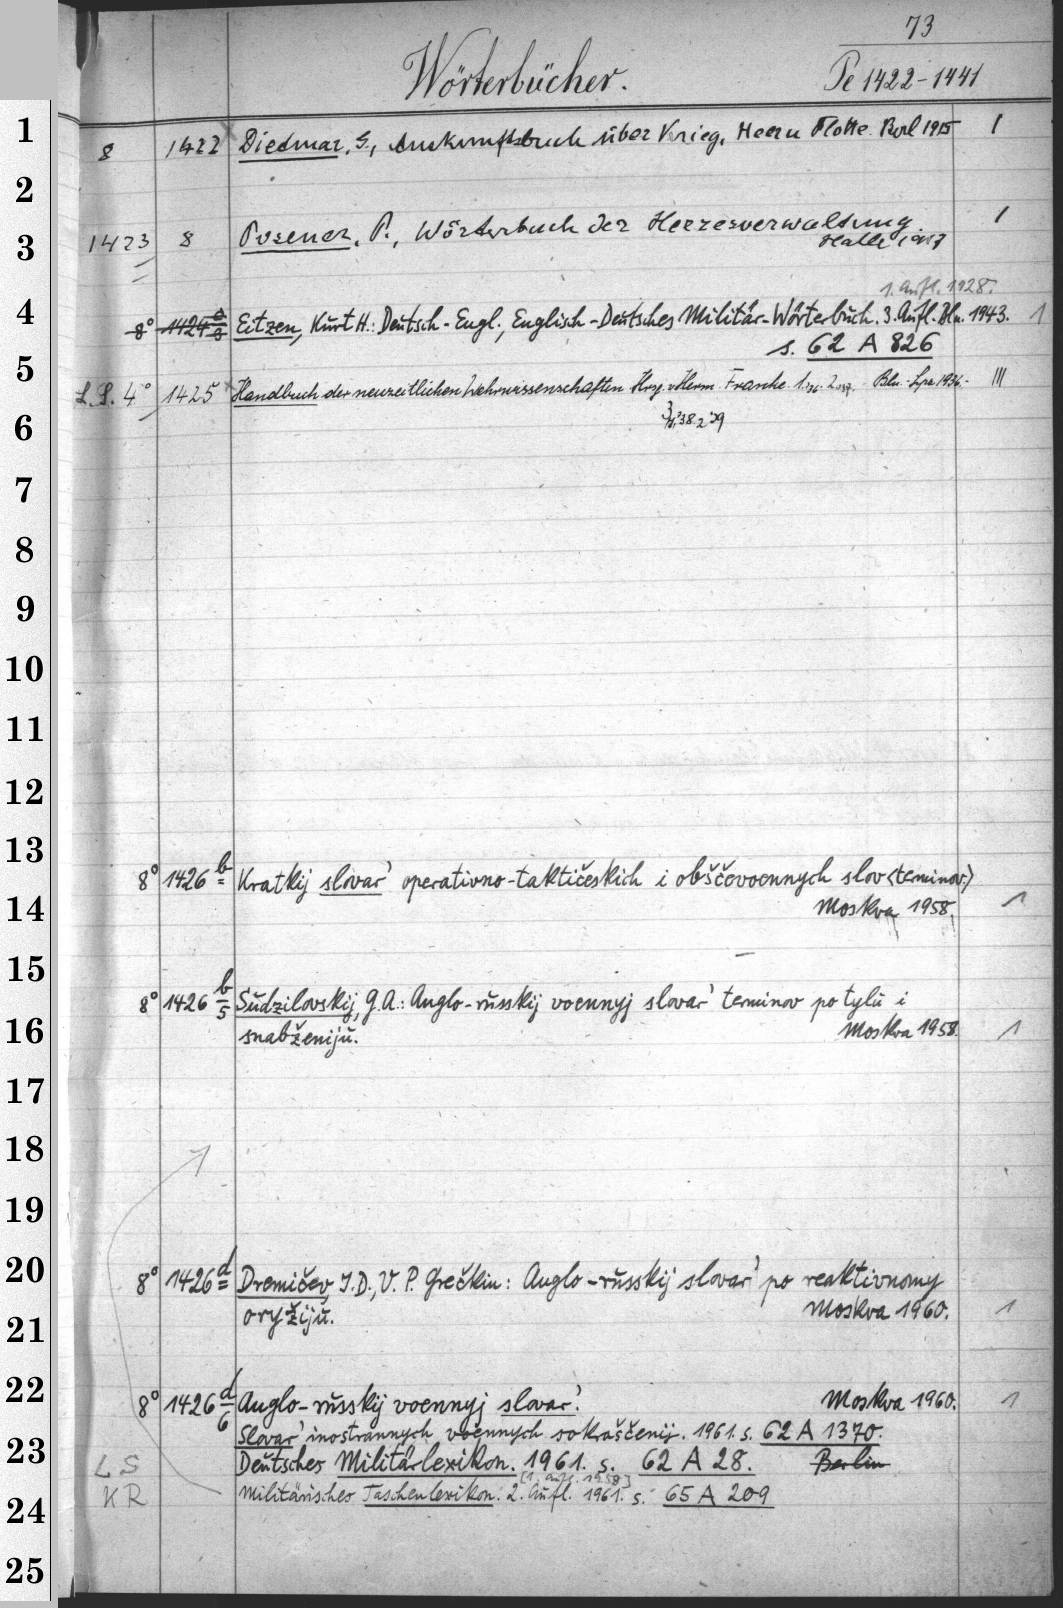 73
Wörterbücher.
Pe 1422-1441
1
8 1422 Diedmar, G., Auskunftsbuch über Krieg, Heer u Flotte. Berl 1915 I
2
3
1423 8 Posener, P., Wörterbuch der Heeresverwaltung I
Halle 1917
1. Aufl. 1928.
4
8° 1424 a/8 Eitzen, Kurt H.: Deutsch-Engl., Englisch-Deutsches Militär-Wörterbuch. 3. Aufl. Bln. 1943. 1
s. 62 A 826
5
L.S. 4° 1425 Handbuch der neuzeitlichen Wehrwissenschaften Hrsg. v Herm. Franke. 1. 36. 2. 37. Bln.-Lpz 1936.- III
6
3,1. 38. 2 39
7
8
9
10
11
12
13
8° 1426 b Kratkij slovar' operativno-taktičeskich i obščevoennych slov (terminov.)
14
Moskva 1958. 1
15
8° 1426 b/5 Sudzilovskij, G.A.: Anglo-russkij voennyj slovar' terminov po tylu i
16
snabženiju. Moskva 1958. 1
17
18
19
20
8° 1426 d Dremičev, I.D., V. P. Grečkin: Anglo-russkij slovar' po reaktivnomy
21
oryžiju. Moskva 1960. 1
22
8° 1426 d/6 Anglo-russkij voennyj slovar'. Moskva 1960. 1
Slovar' inostrannych voennych sokraščenij. 1961. s. 62 A 1370.
23
LS Deutsches Militärlexikon. 1961. s. 62 A 28. Berlin
[1. Aufl. 1958]
24
KR Militärisches Taschenlexikon. 2. Aufl. 1961. s. 65 A 209
25